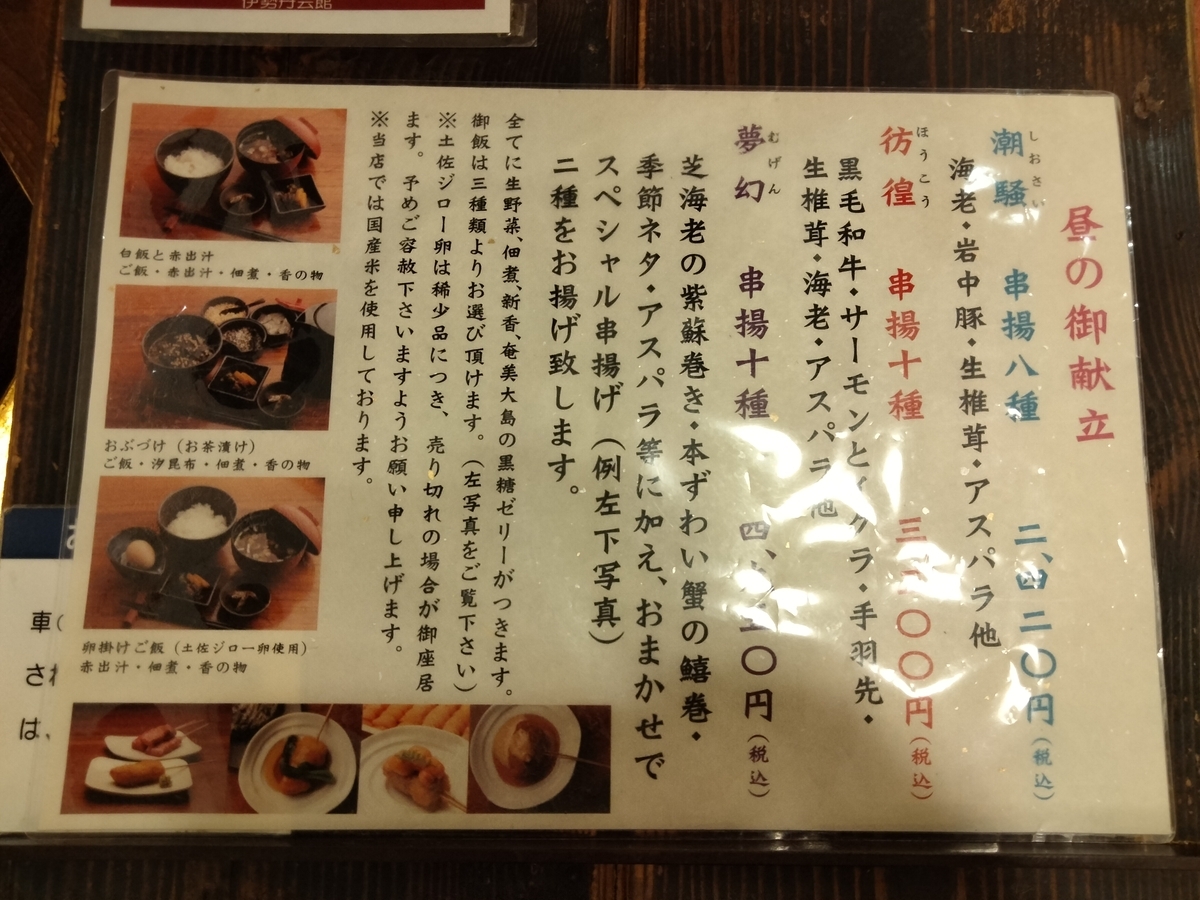 伊勢丹会館
昼の御献立
潮騒 串揚八種 二、四二〇円(税込)
しおさい
海老・岩中豚・生椎茸・アスパラ他
彷徨 串揚十種 三、 〇〇円(税込)
ほうこう
黒毛和牛・サーモンとイクラ・手羽先・
生椎茸・海老・アスパラ他
夢幻 串揚十種 四、 〇円(税込)
むげん
芝海老の紫蘇巻き・本ずわい蟹の鱚巻・
季節ネタ・アスパラ等に加え、おまかせで
スペシャル串揚げ(例左下写真)
二種をお揚げ致します。
全てに生野菜、佃煮、新香、奄美大島の黒糖ゼリーがつきます。
御飯は三種類よりお選び頂けます。(左写真をご覧下さい)
※土佐ジロー卵は稀少品につき、売り切れの場合が御座居
ます。予めご容赦下さいますようお願い申し上げます。
※当店では国産米を使用しております。
白飯と赤出汁
ご飯・赤出汁・佃煮・香の物
おぶづけ(お茶漬け)
ご飯・汐昆布・佃煮・香の物
卵掛けご飯(土佐ジロー卵使用)
赤出汁・佃煮・香の物
車(
さ
は、